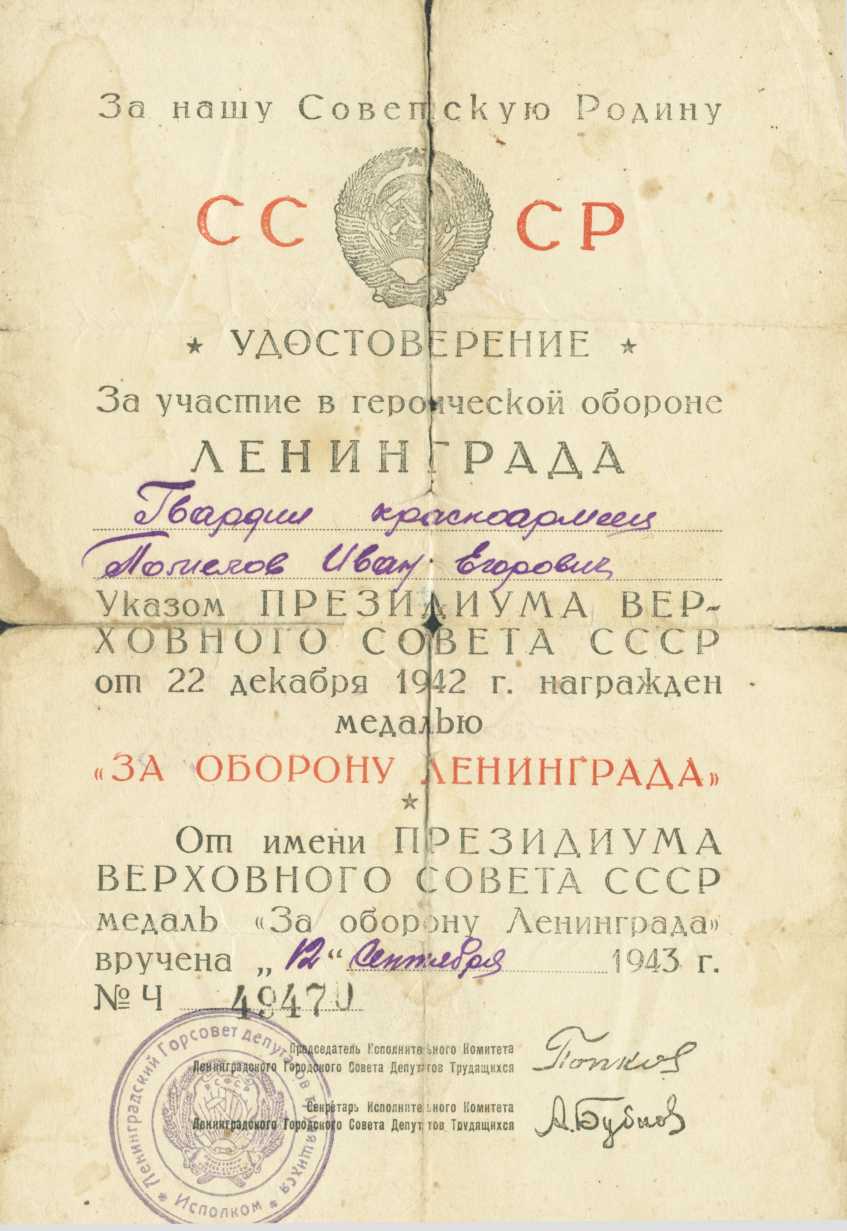 За нашу Советскую Родину
СС СР
★ УДОСТОВЕРЕНИЕ ★
За участие в героической обороне
ЛЕНИНГРАДА
Гвардии красноармеец
Иван Егорович
Указом ПРЕЗИДИУМА ВЕР-
ХОВНОГО СОВЕТА СССР
от 22 декабря 1942 г. награжден
медалью
«ЗА ОБОРОНУ ЛЕНИНГРАДА»
★
От имени ПРЕЗИДИУМА
ВЕРХОВНОГО СОВЕТА СССР
медаль «За оборону Ленинграда»
вручена „12“ Сентября 1943 г.
№ Ч 49470
Председатель Исполнительного Комитета
Ленинградского Городского Совета Депутатов Трудящихся
Попков
Секретарь Исполнительного Комитета
Ленинградского Городского Совета Депутатов Трудящихся
А.Бубнов
Ленинградский Горсовет депутатов трудящихся
★ Исполком ★